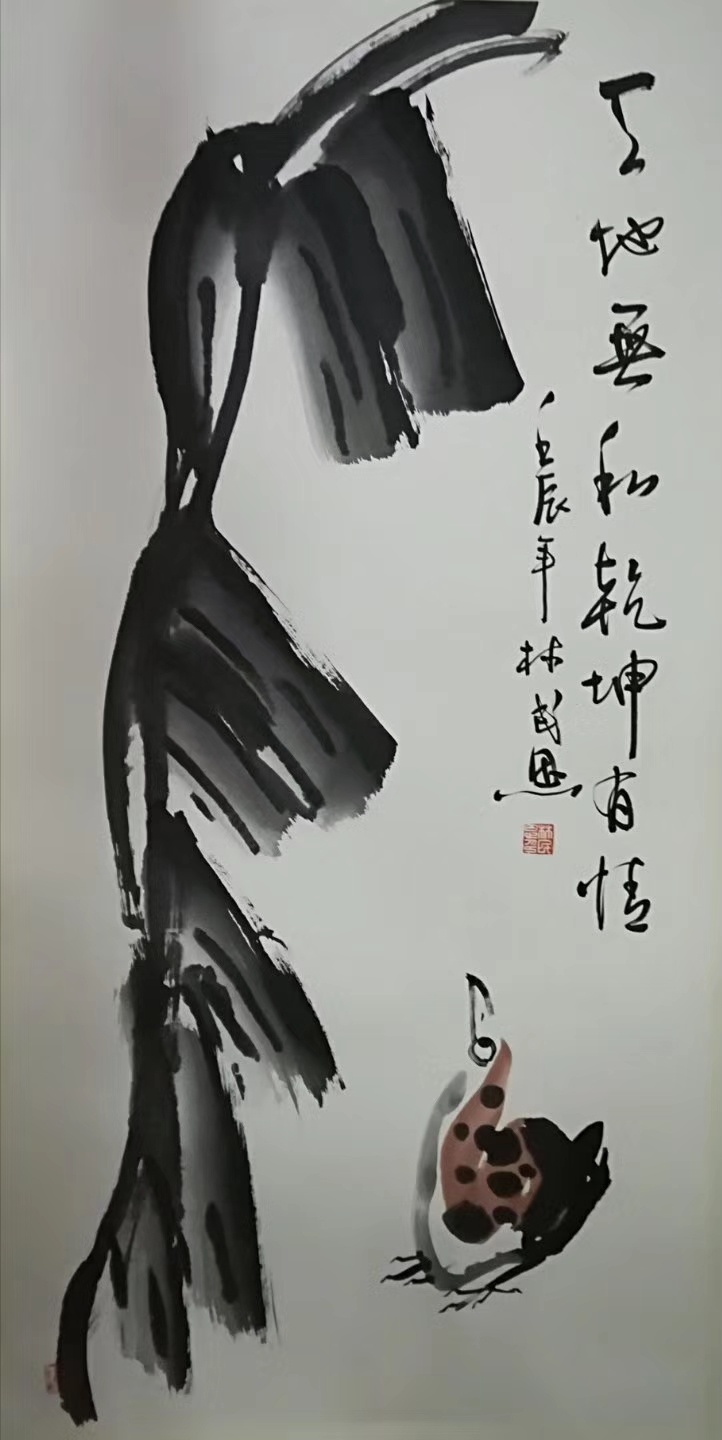 天地無私乾坤有情
壬辰年林成恩